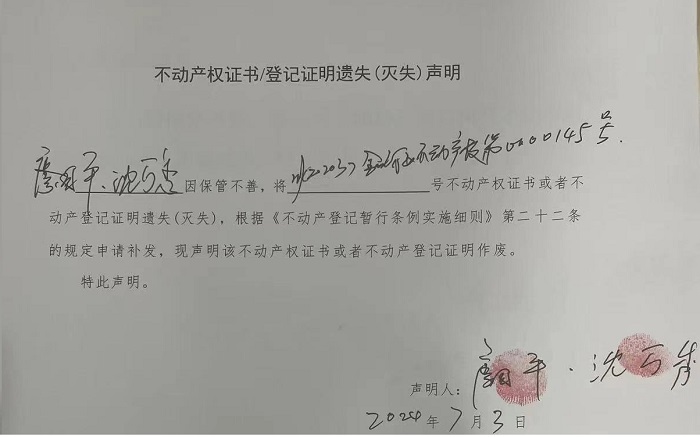 不动产权证书/登记证明遗失(灭失)声明
平、沈 因保管不善,将 不动产权第0000145号 号不动产权证书或者不
动产登记证明遗失(灭失),根据《不动产登记暂行条例实施细则》第二十二条
的规定申请补发,现声明该不动产权证书或者不动产登记证明作废。
特此声明。
声明人: 平、沈
2024年7月3日